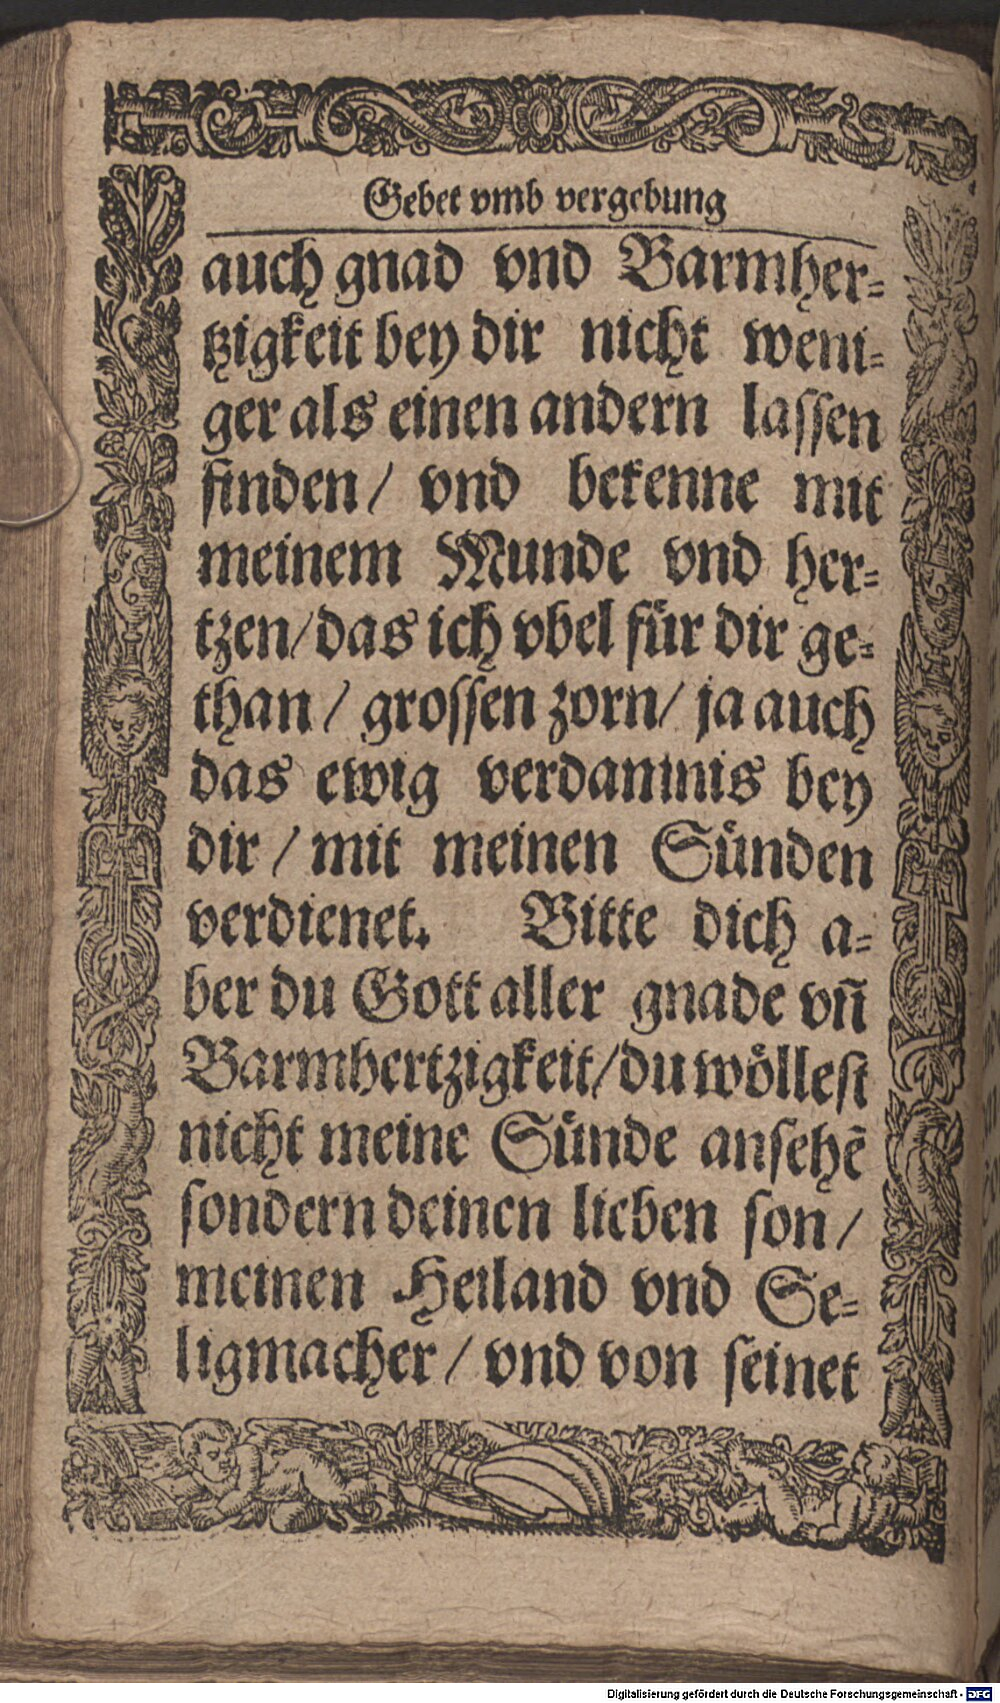 Gebet vmb vergebung
auch gnad vnd Barmher⸗
tzigkeit bey dir nicht weni⸗
ger als einen andern lassen
finden / vnd bekenne mit
meinem Munde vnd her⸗
tzen / das ich vbel fuͤr dir ge⸗
than / grossen zorn / ja auch
das ewig verdamnis bey
dir / mit meinen Suͤnden
verdienet. Bitte dich a⸗
ber du Gott aller gnade vn̄
Barmhertzigkeit / du woͤllest
nicht meine Suͤnde ansehē
sondern deinen lieben son /
meinen Heiland vnd Se⸗
ligmacher / vnd von seinet
Digitalisierung gefördert durch die Deutsche Forschungsgemeinschaft - DFG